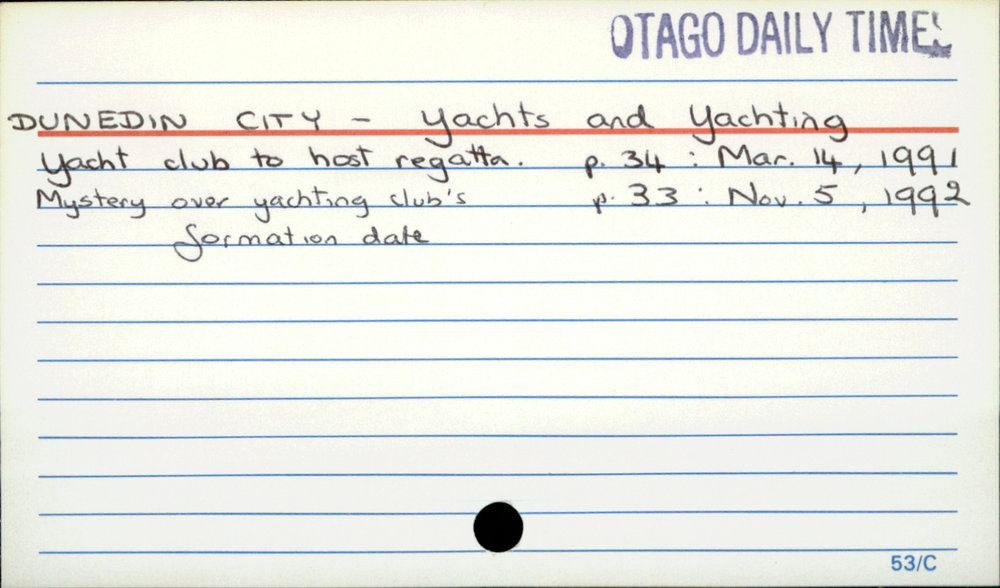 OTAGO DAILY TIMES
DUNEDIN CITY - Yachts and Yachting
Yacht club to host regatta. p. 34 : Mar. 14, 1991
Mystery over yachting club's p. 33 : Nov. 5, 1992
formation date
53/C